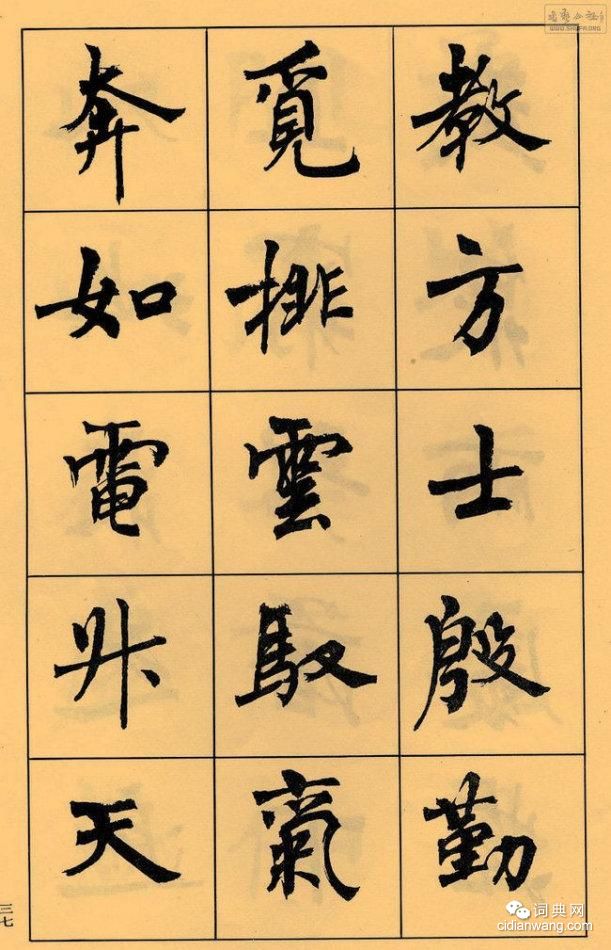 教方士殷勤
覓排雲馭氣
奔如電升天
三七
WWW.SHUFA.ORG
词典网
cidianwang.com